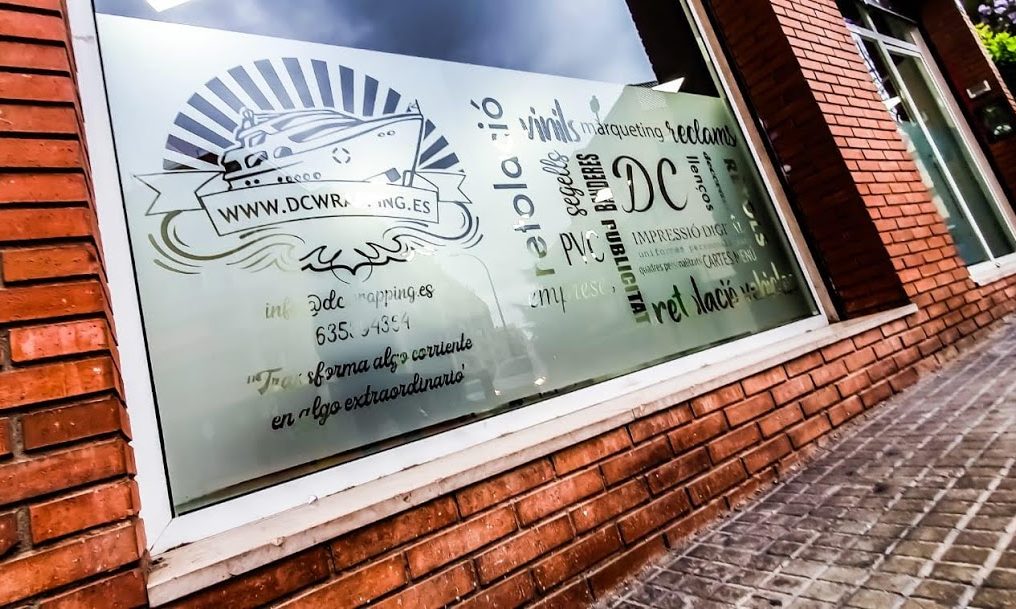 WWW.DCWRAPPING.ES
635
"Transforma algo corriente
en algo extraordinario"
retolació
vinils
marqueting
reclams
segells
BANDERES
DC
llenços
PVC
PUBLICITAT
IMPRESSIÓ
uniformes
quadres
CARTES MENÚ
empreses
retolació vehicles